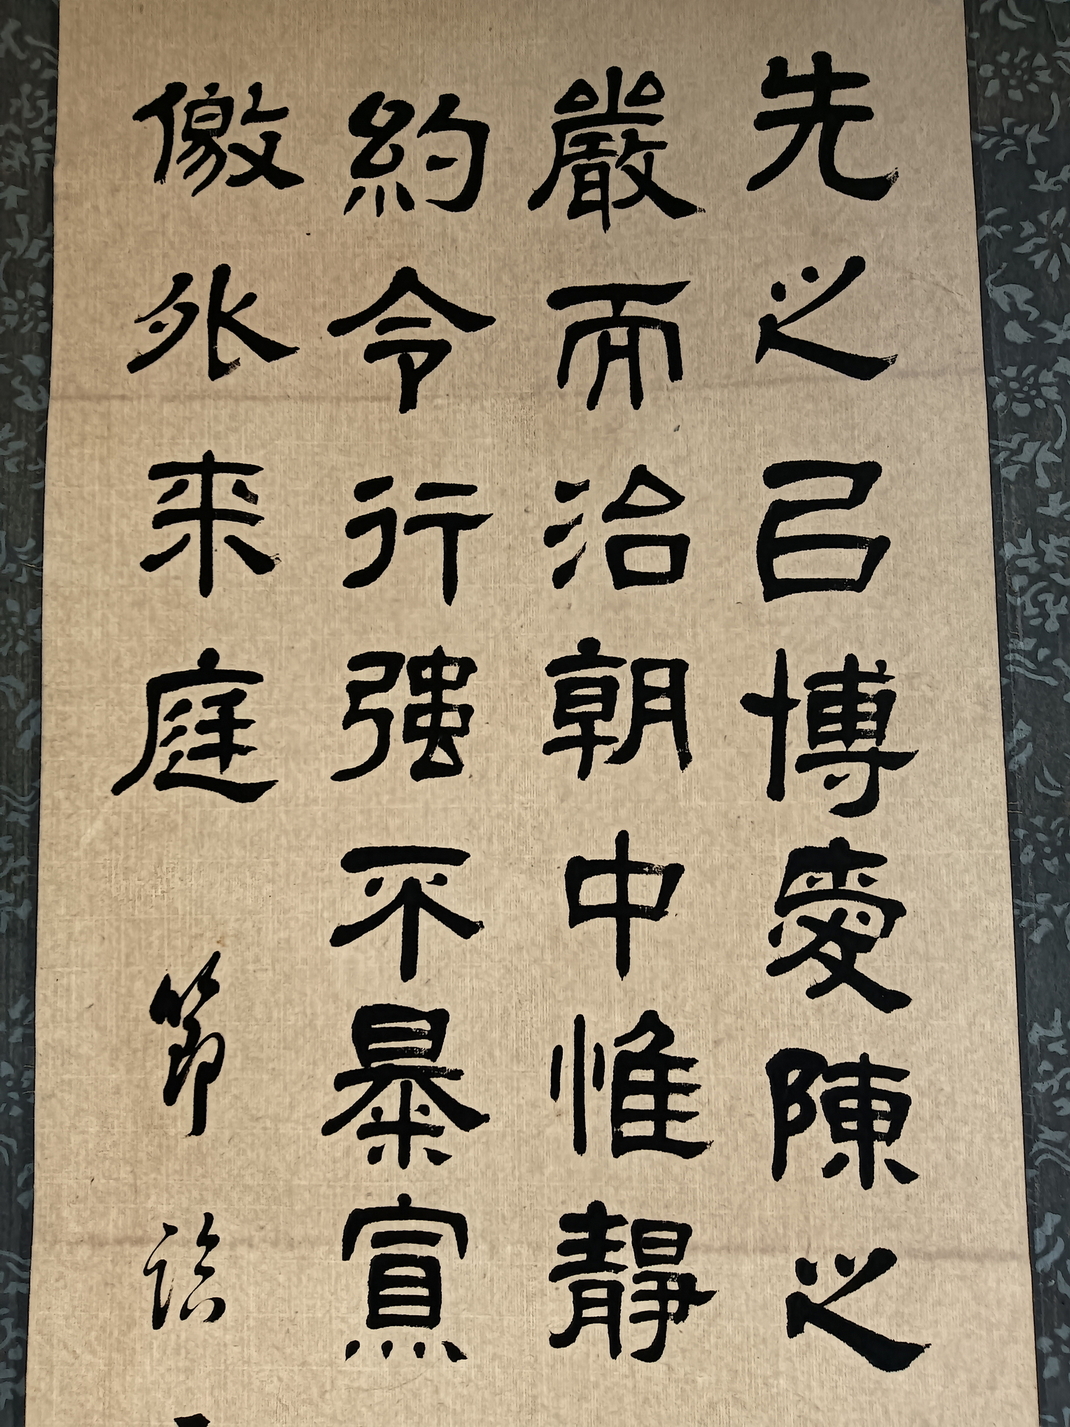 先之㠯博愛陳之
嚴而治朝中惟靜
約令行强不暴寡
儌外来庭 節臨